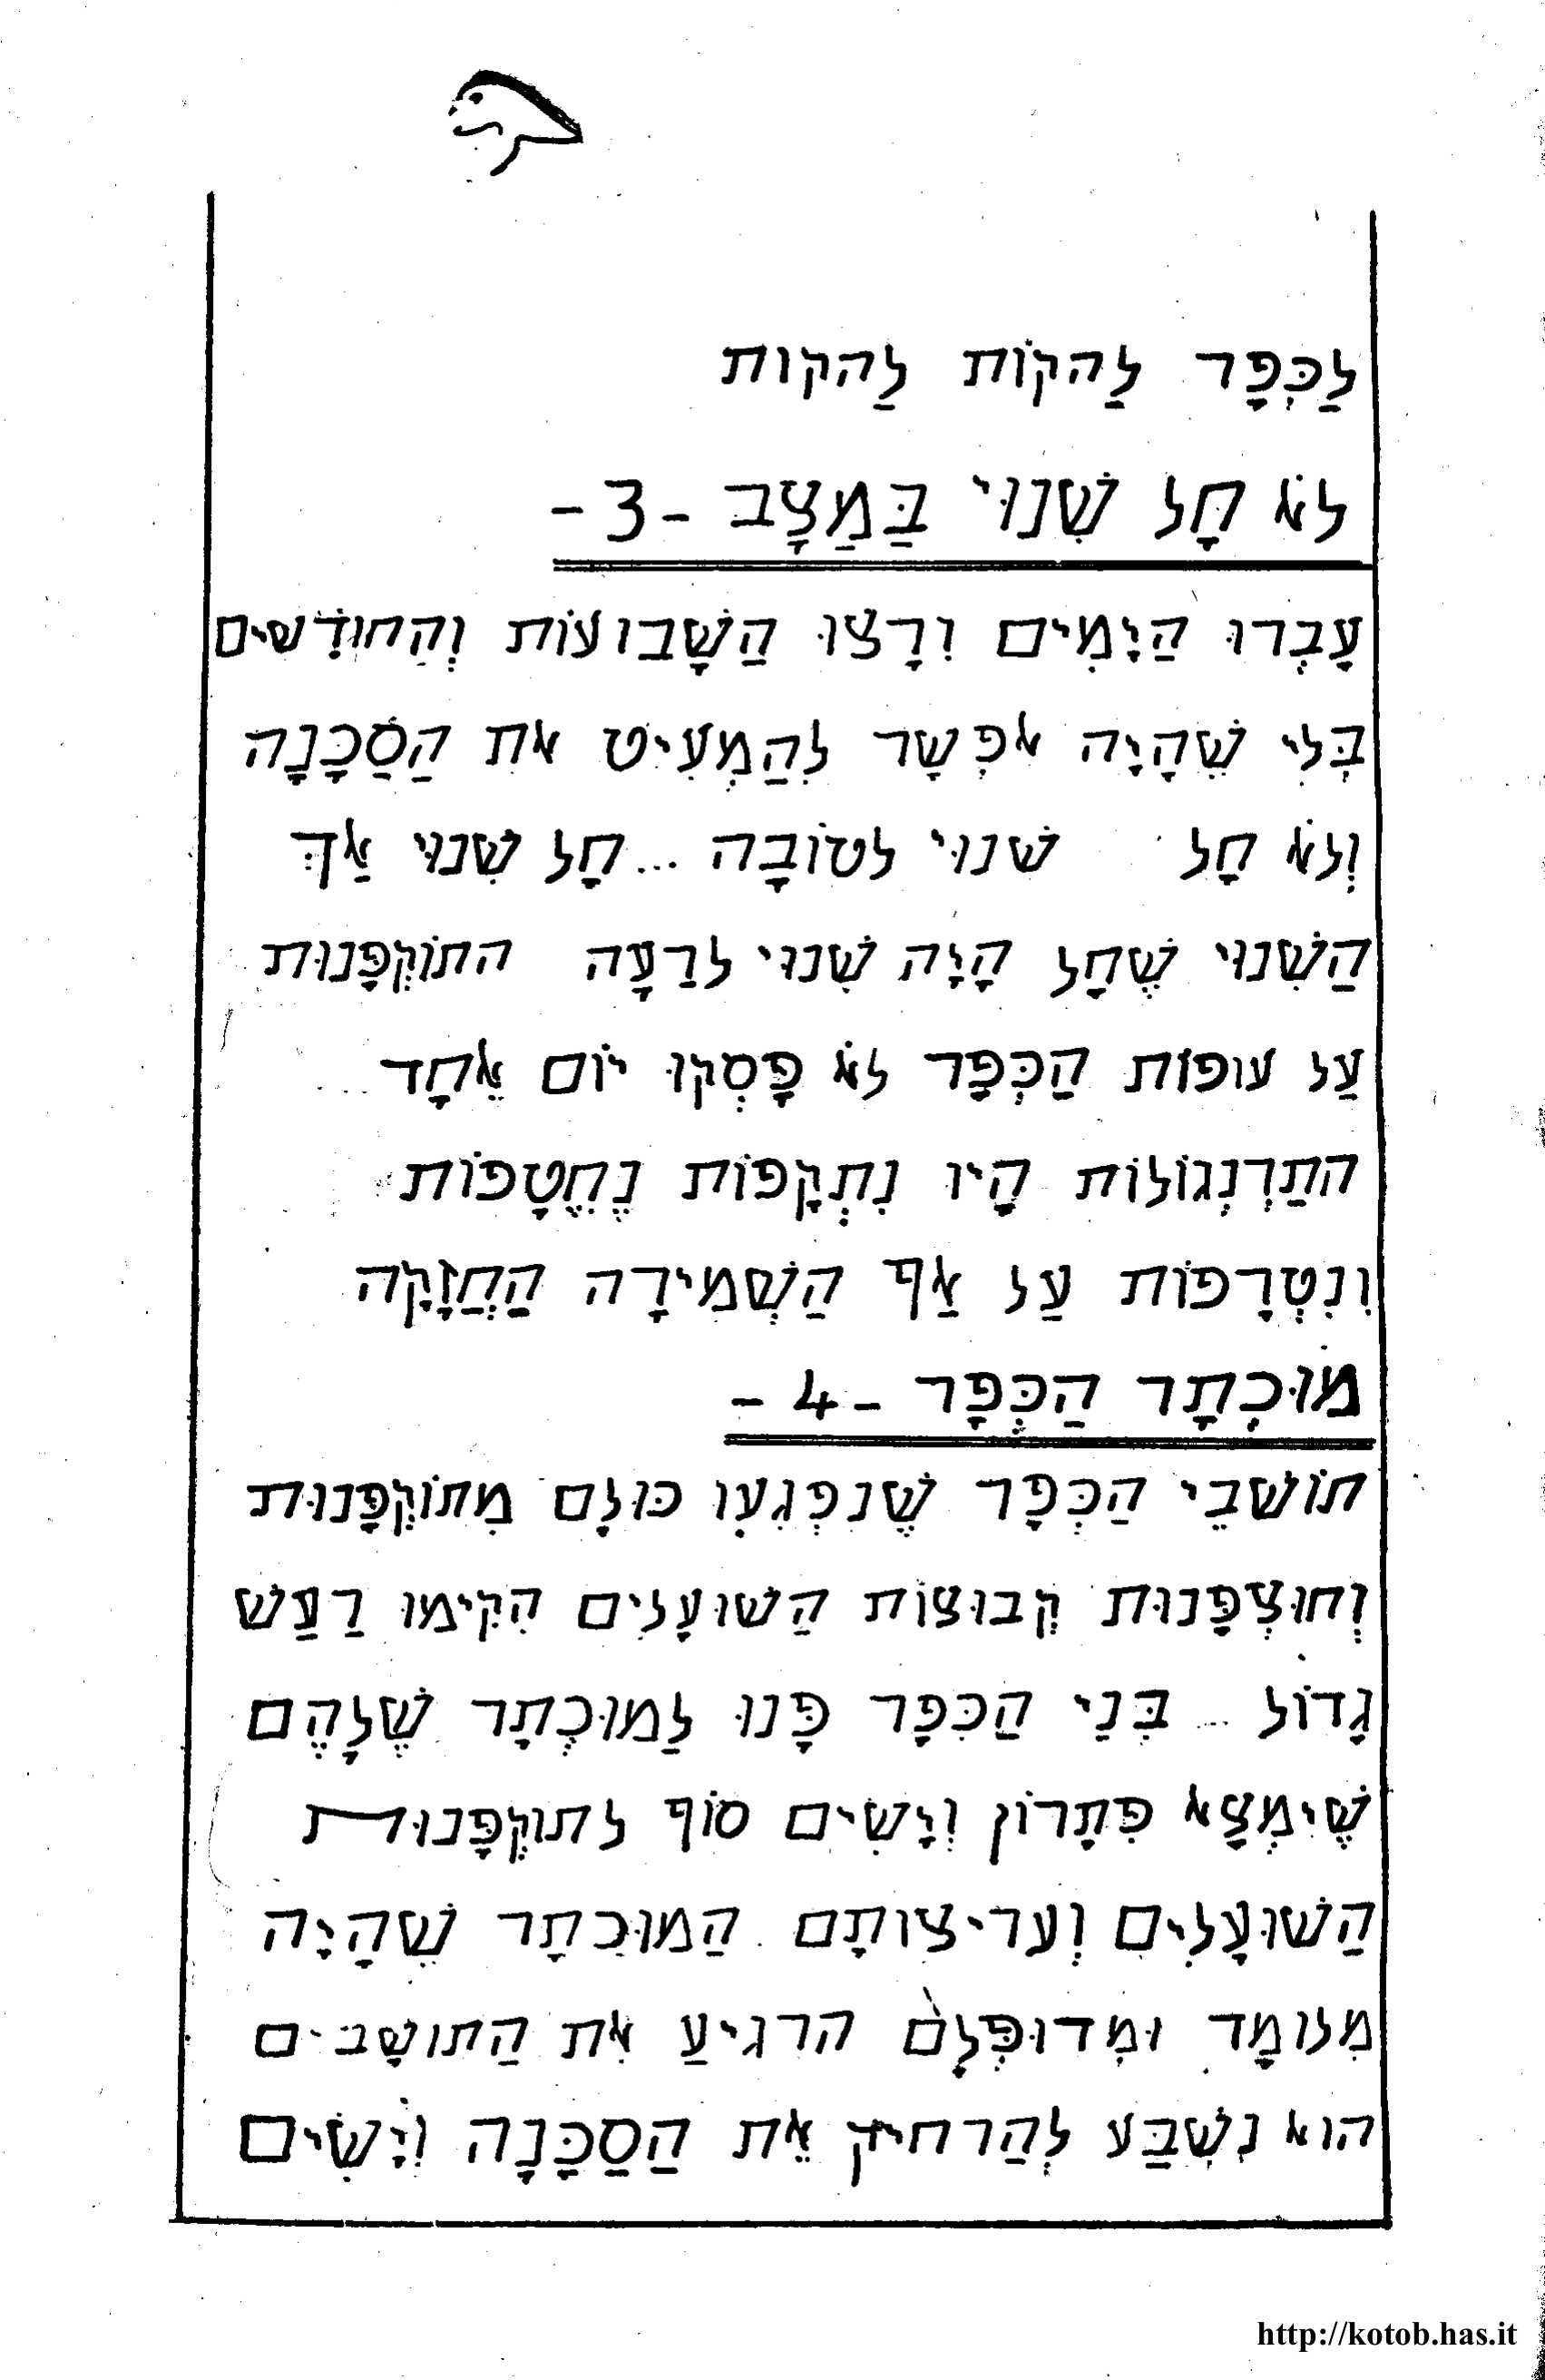 לַכְּפָר לַהקוֹת לַהקות
לֹא חָל שִׁנוּי בַּמַצָב -3-
עָבְרוּ הַיָמִים וִרָצוּ הַשָׁבוּעוֹת וְהַחוֹדָשִים
בְּלִי שֶׁהָיָה אִפְשָר לְהַמְעִיט אִת הַסַכָּנָה
וְלֹא חָל שִׁנוּי לטוֹבָה ...חָל שִׁנוּי אַךְ
הַשִׁנוּי שֶׁחָל הָיָה שִׁנוּי לרַעָה התוֹקְפָּנוּת
עַל עופוֹת הַכְּפָר לֹא פָּסְקוּ יוֹם אֵחָד
התַרְנְגוֹלוֹת הָיוּ נִתְקָפוֹת נֶחֱטָפוֹת
וִנִטְרָפוֹת עַל אַף הַשְׁמִירָה הַחֲזָקָה
מוּכְתָר הַכְּפָר -4-
תוֹשׁבֵי הַכְּפָר שֶׁנִפְגְעוּ כּוּלָם מִתוֹקְפָּנוּת
וְחוּצְפָּנוּת קְבוּצוֹת הַשׁוּעָלִים הִקִימוּ רַעַשׁ
גָדוֹל ... בְּנַי הַכִּפָר פָּנוּ לַמוּכְתָר שֶׁלָהֶם
שֶׁיִמְצָא פִתָרוֹן וְיָשִׂים סוֹף לתוֹקְפָּנוּת
הַשׁוּעָלִים וְעריצוּתָם. הַמוּכתָר שֶׁהָיָה
מִלוּמָד וּמְדוּפְּלָם הרגיעַ אִת הַתושָׁבים
הוּא נִשְׁבַּע לְהַרחִיק אֵת הַסַכָּנָה וְיָשִׂים
http://kotob.has.it